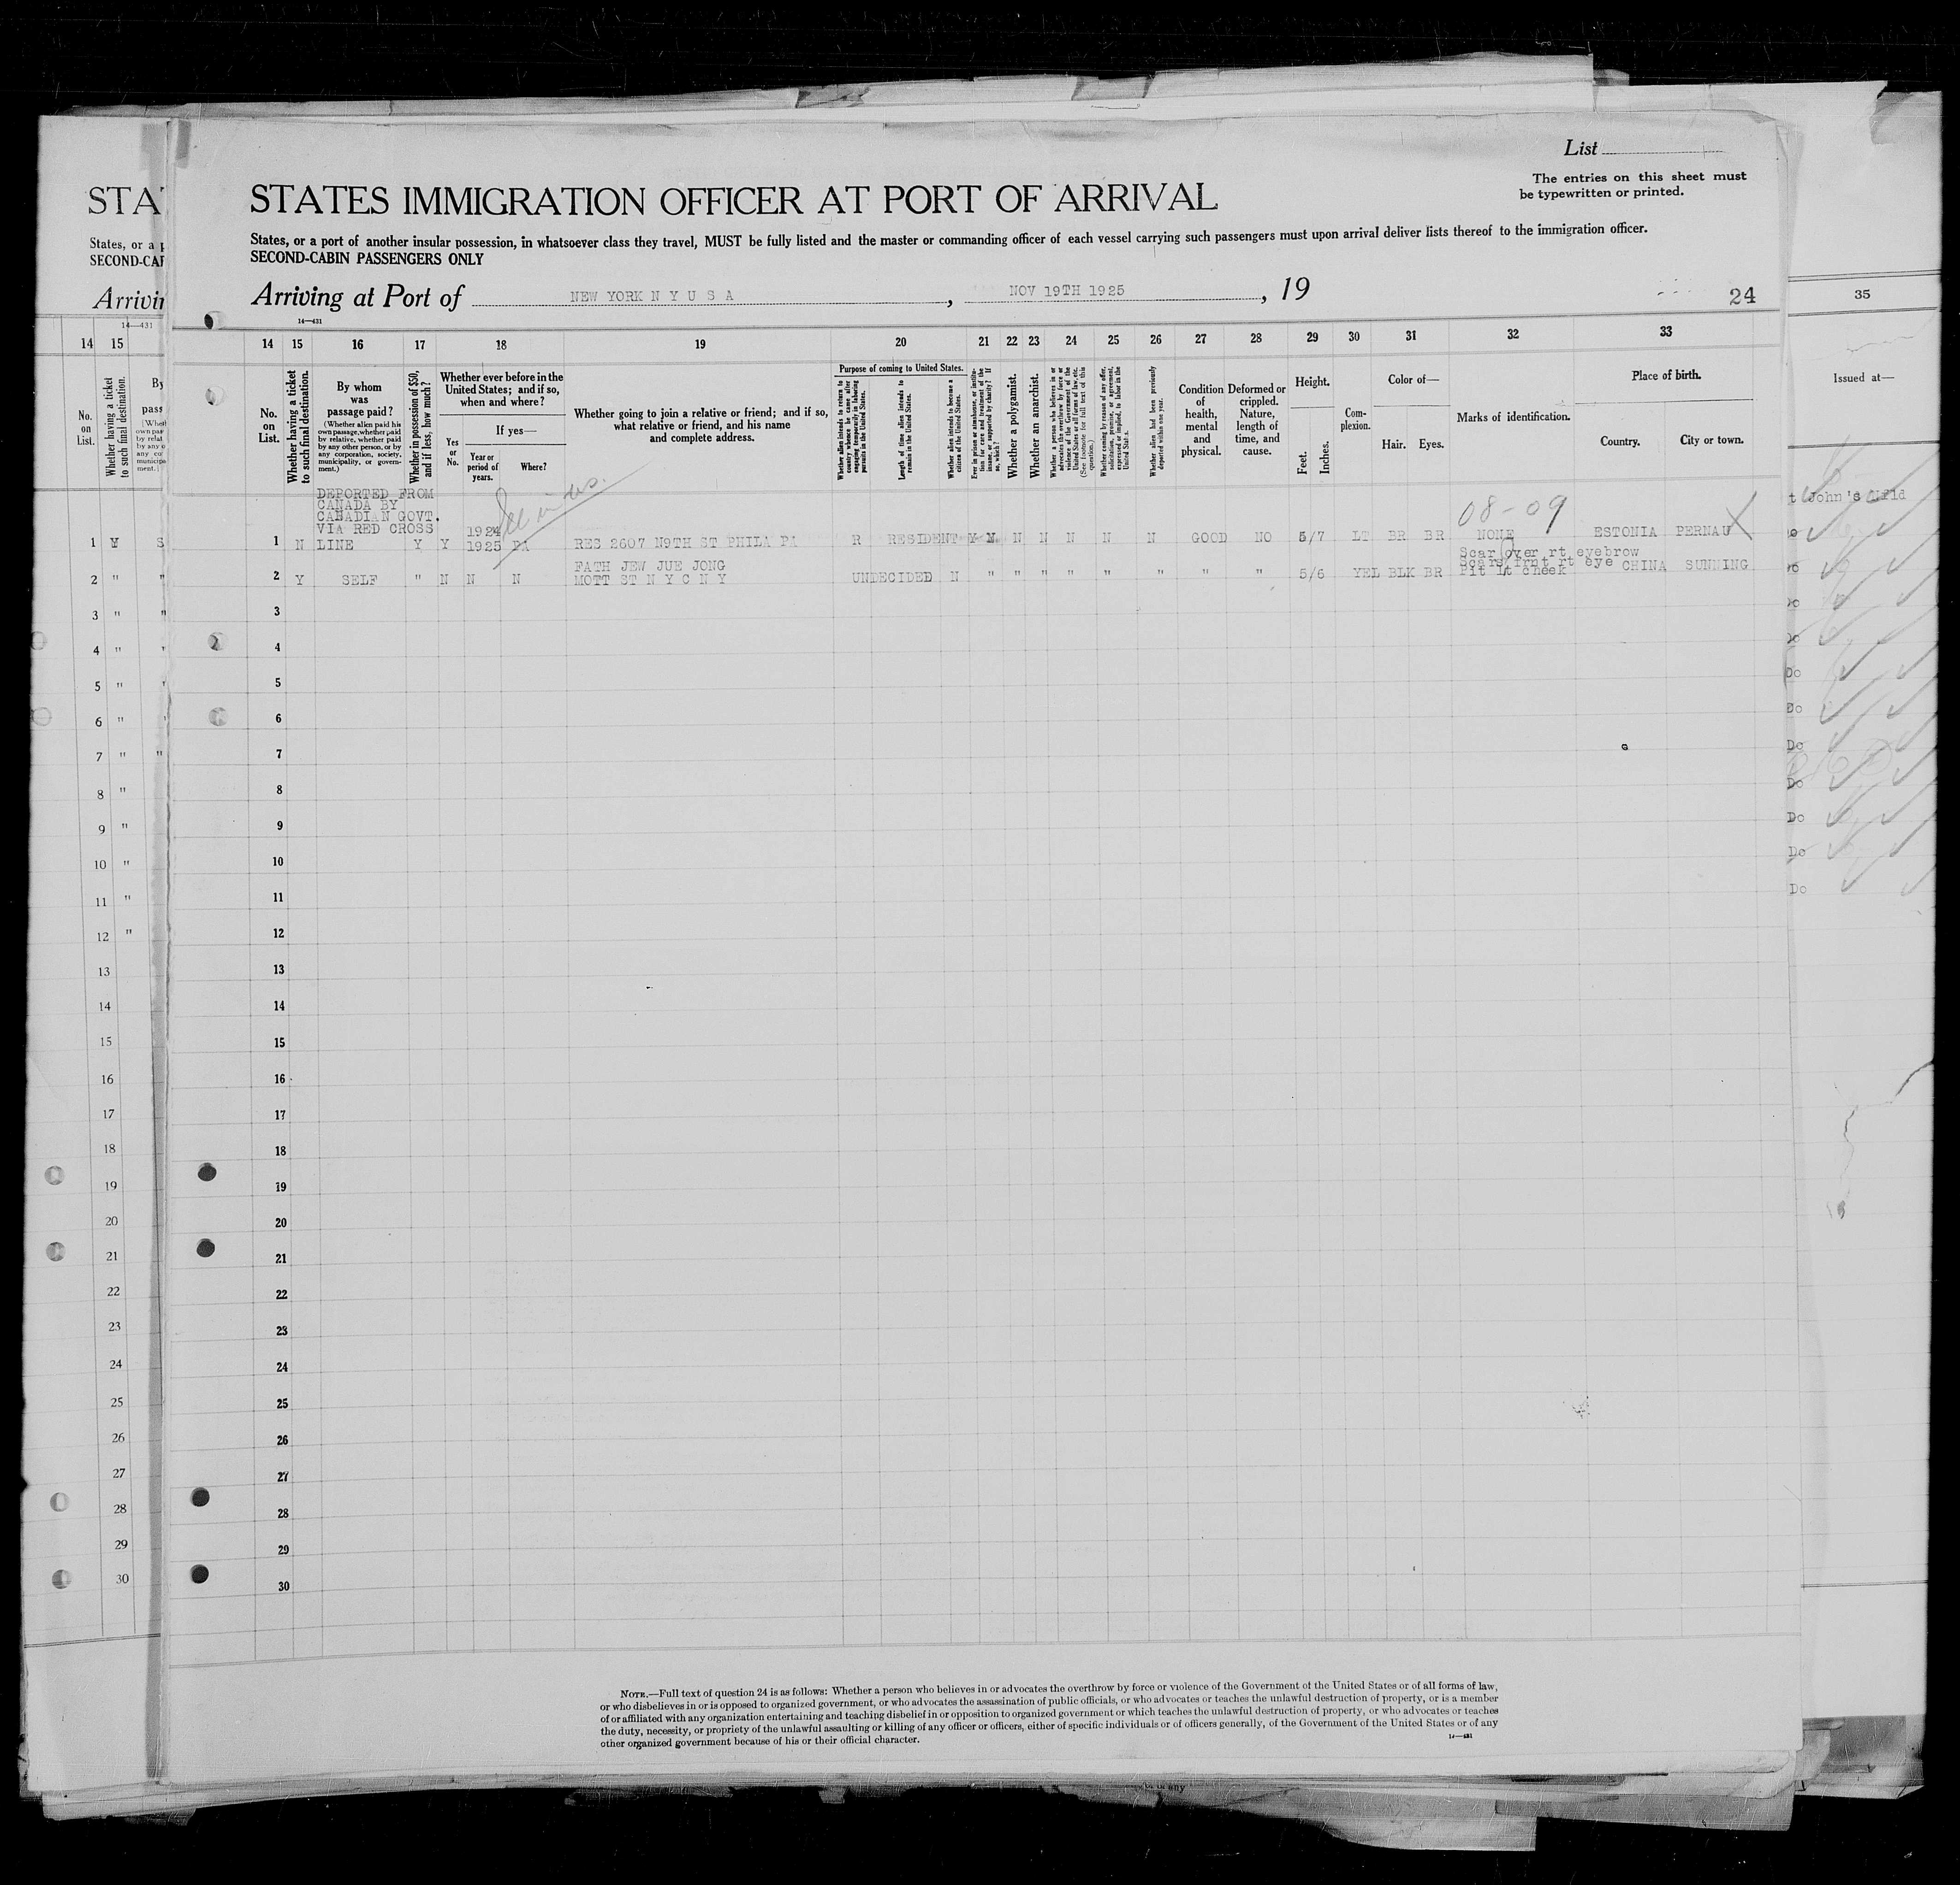 List
The entries on this sheet must
be typewritten or printed.
STATES IMMIGRATION OFFICER AT PORT OF ARRIVAL
States, or a port of another insular possession, in whatsoever class they travel, MUST be fully listed and the master or commanding officer of each vessel carrying such passengers must upon arrival deliver lists thereof to the immigration officer.
SECOND-CABIN PASSENGERS ONLY
Arriving at Port of NEW YORK N Y U S A , NOV 19TH 1925 , 19
24
14—431
14 15 16 17 18 19 20 21 22 23 24 25 26 27 28 29 30 31 32 33
No. on List.
Whether having a ticket to such final destination.
By whom was passage paid?
(Whether alien paid his own passage, whether paid by relative, whether paid by any other person, or by any corporation, society, municipality, or government.)
Whether in possession of $50, and if less, how much?
Whether ever before in the United States; and if so, when and where?
Yes or No.
If yes—
Year or period of years.
Where?
Whether going to join a relative or friend; and if so, what relative or friend, and his name and complete address.
Purpose of coming to United States.
Whether alien intends to return to country whence he came after engaging temporarily in laboring pursuits in the United States.
Length of time alien intends to remain in the United States.
Whether alien intends to become a citizen of the United States.
Ever in prison or almshouse, or institution for care and treatment of the insane, or supported by charity? If so, which?
Whether a polygamist.
Whether an anarchist.
Whether a person who believes in or advocates the overthrow by force or violence of the Government of the United States or all forms of law, etc. (See footnote for full text of this question.)
Whether coming by reason of any offer, solicitation, promise, or agreement, expressed or implied, to labor in the United States.
Whether alien had been previously deported within one year.
Condition of health, mental and physical.
Deformed or crippled. Nature, length of time, and cause.
Height.
Feet. Inches.
Complexion.
Color of—
Hair. Eyes.
Marks of identification.
Place of birth.
Country. City or town.
DEPORTED FROM
CANADA BY
CANADIAN GOVT.
VIA RED CROSS 1924
08-09
1 N LINE Y Y 1925 PA RES 2607 N9TH ST PHILA PA R RESIDENT Y N N N N N N GOOD NO 5/7 LT BR BR NONE ESTONIA PERNAU
Scar over rt eyebrow
FATH JEW JUE JONG
Scars frnt rt eye
2 Y SELF " N N N MOTT ST N Y C N Y UNDECIDED N " " " " " " " " 5/6 YEL BLK BR Pit lt cheek CHINA SUNNING
3
4
5
6
7
8
9
10
11
12
13
14
15
16
17
18
19
20
21
22
23
24
25
26
27
28
29
30
NOTE.—Full text of question 24 is as follows: Whether a person who believes in or advocates the overthrow by force or violence of the Government of the United States or of all forms of law,
or who disbelieves in or is opposed to organized government, or who advocates the assassination of public officials, or who advocates or teaches the unlawful destruction of property, or is a member
of or affiliated with any organization entertaining and teaching disbelief in or opposition to organized government or which teaches the unlawful destruction of property, or who advocates or teaches
the duty, necessity, or propriety of the unlawful assaulting or killing of any officer or officers, either of specific individuals or of officers generally, of the Government of the United States or of any
other organized government because of his or their official character.
14—431
35
Issued at—
John's Nfld
Do
Do
Do
Do
Do
Do